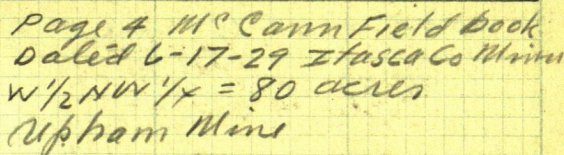 Page 4 McCann Field book
Dated 6-17-29 Itasca Co Minn
W 1/2 NW 1/4 = 80 acres
Upham Mine